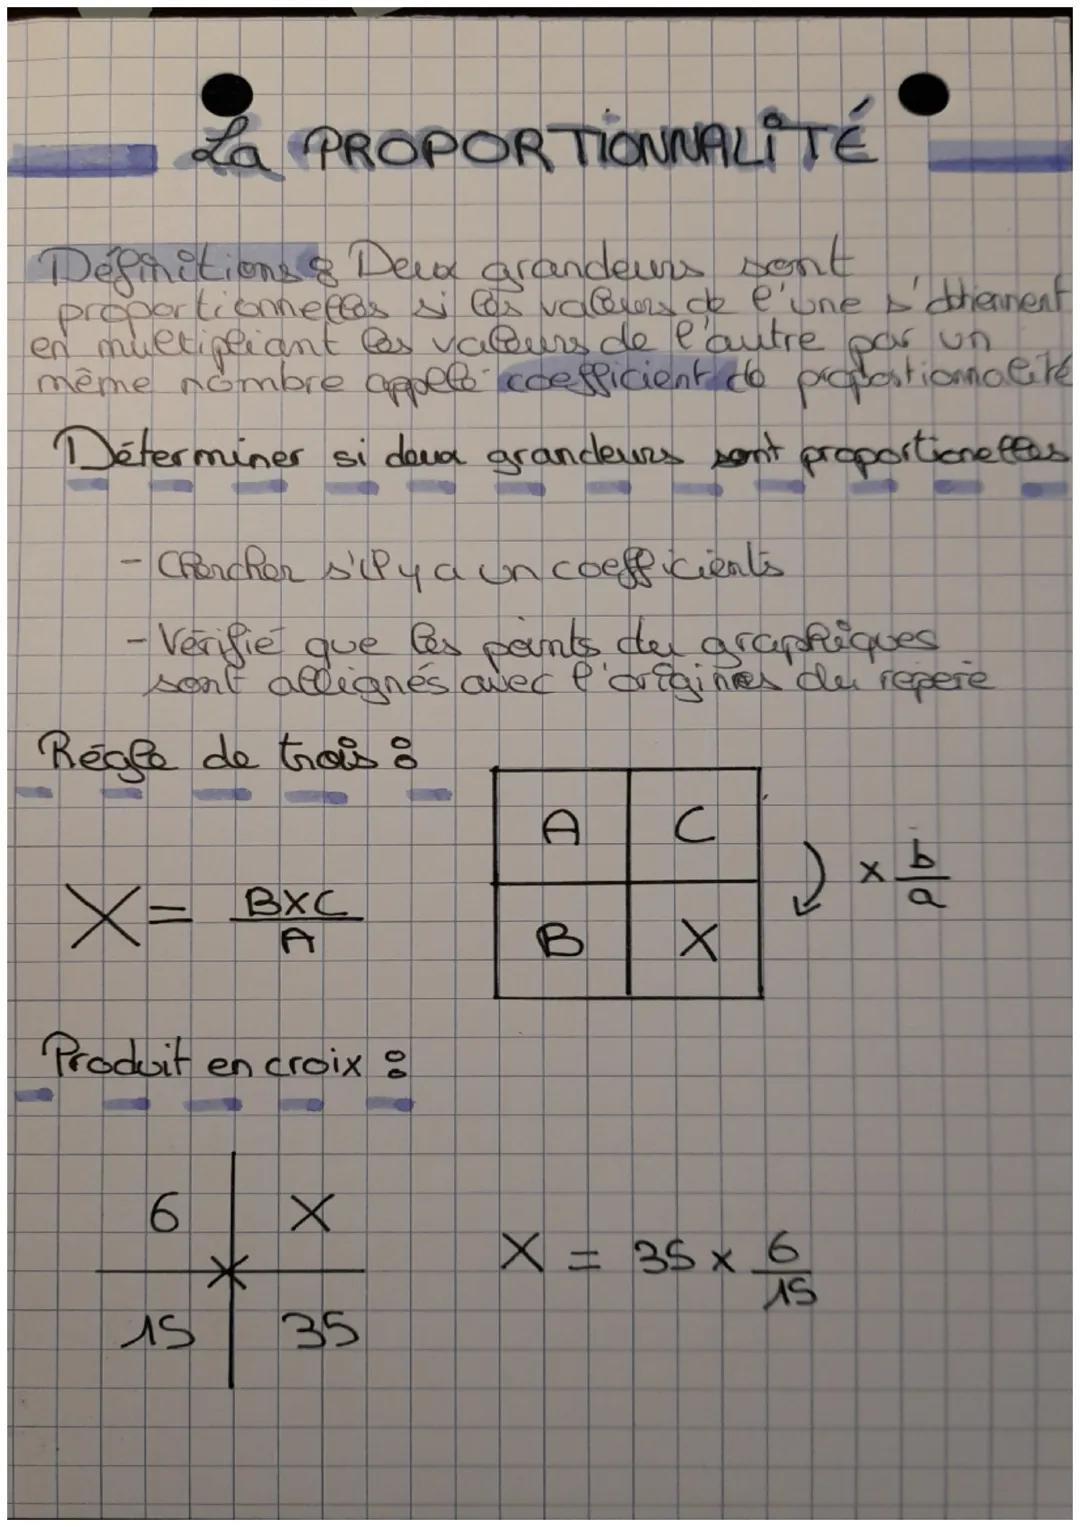 La PROPORTIONNALITÉ
Définitions : Deux grandeurs sont
proportionnelles si les valeurs de l'une s'obtiennent
en multipliant les valeurs de l'autre par un
même nombre appelé coefficient de proportionnalité
Déterminer si deux grandeurs sont proportionelles
- Chercher s'il y a un coefficients
- Vérifié que les points du graphiques
sont allignés avec l'origines du repère
Régle de trois :
A C
X = B×C / A
× b/a
B X
Produit en croix :
6 X
X = 35 × 6/15
15 35